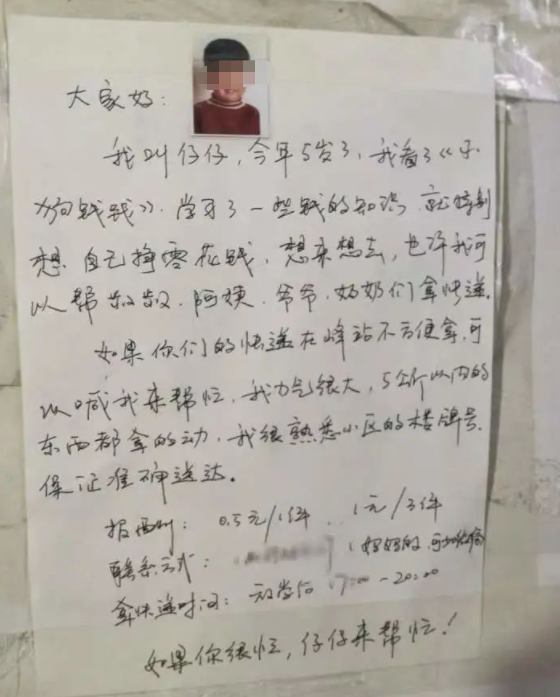 大家好：
我叫仔仔，今年5岁了，我看了《小
狗钱钱》，学习了一些钱的知识，就特别
想自己挣零花钱，想来想去，也许我可
以帮叔叔、阿姨、爷爷、奶奶们拿快递。
如果你们的快递在峰站不方便拿，可
以喊我来帮忙，我力气很大，5公斤以内的
东西都拿的动，我很熟悉小区的楼牌号，
保证准确送达。
报酬：0.5元/1件 1元/3件
联系方式： （妈妈的，可加微信
拿快递时间：放学后 17:00-20:00
如果你很忙，仔仔来帮忙！